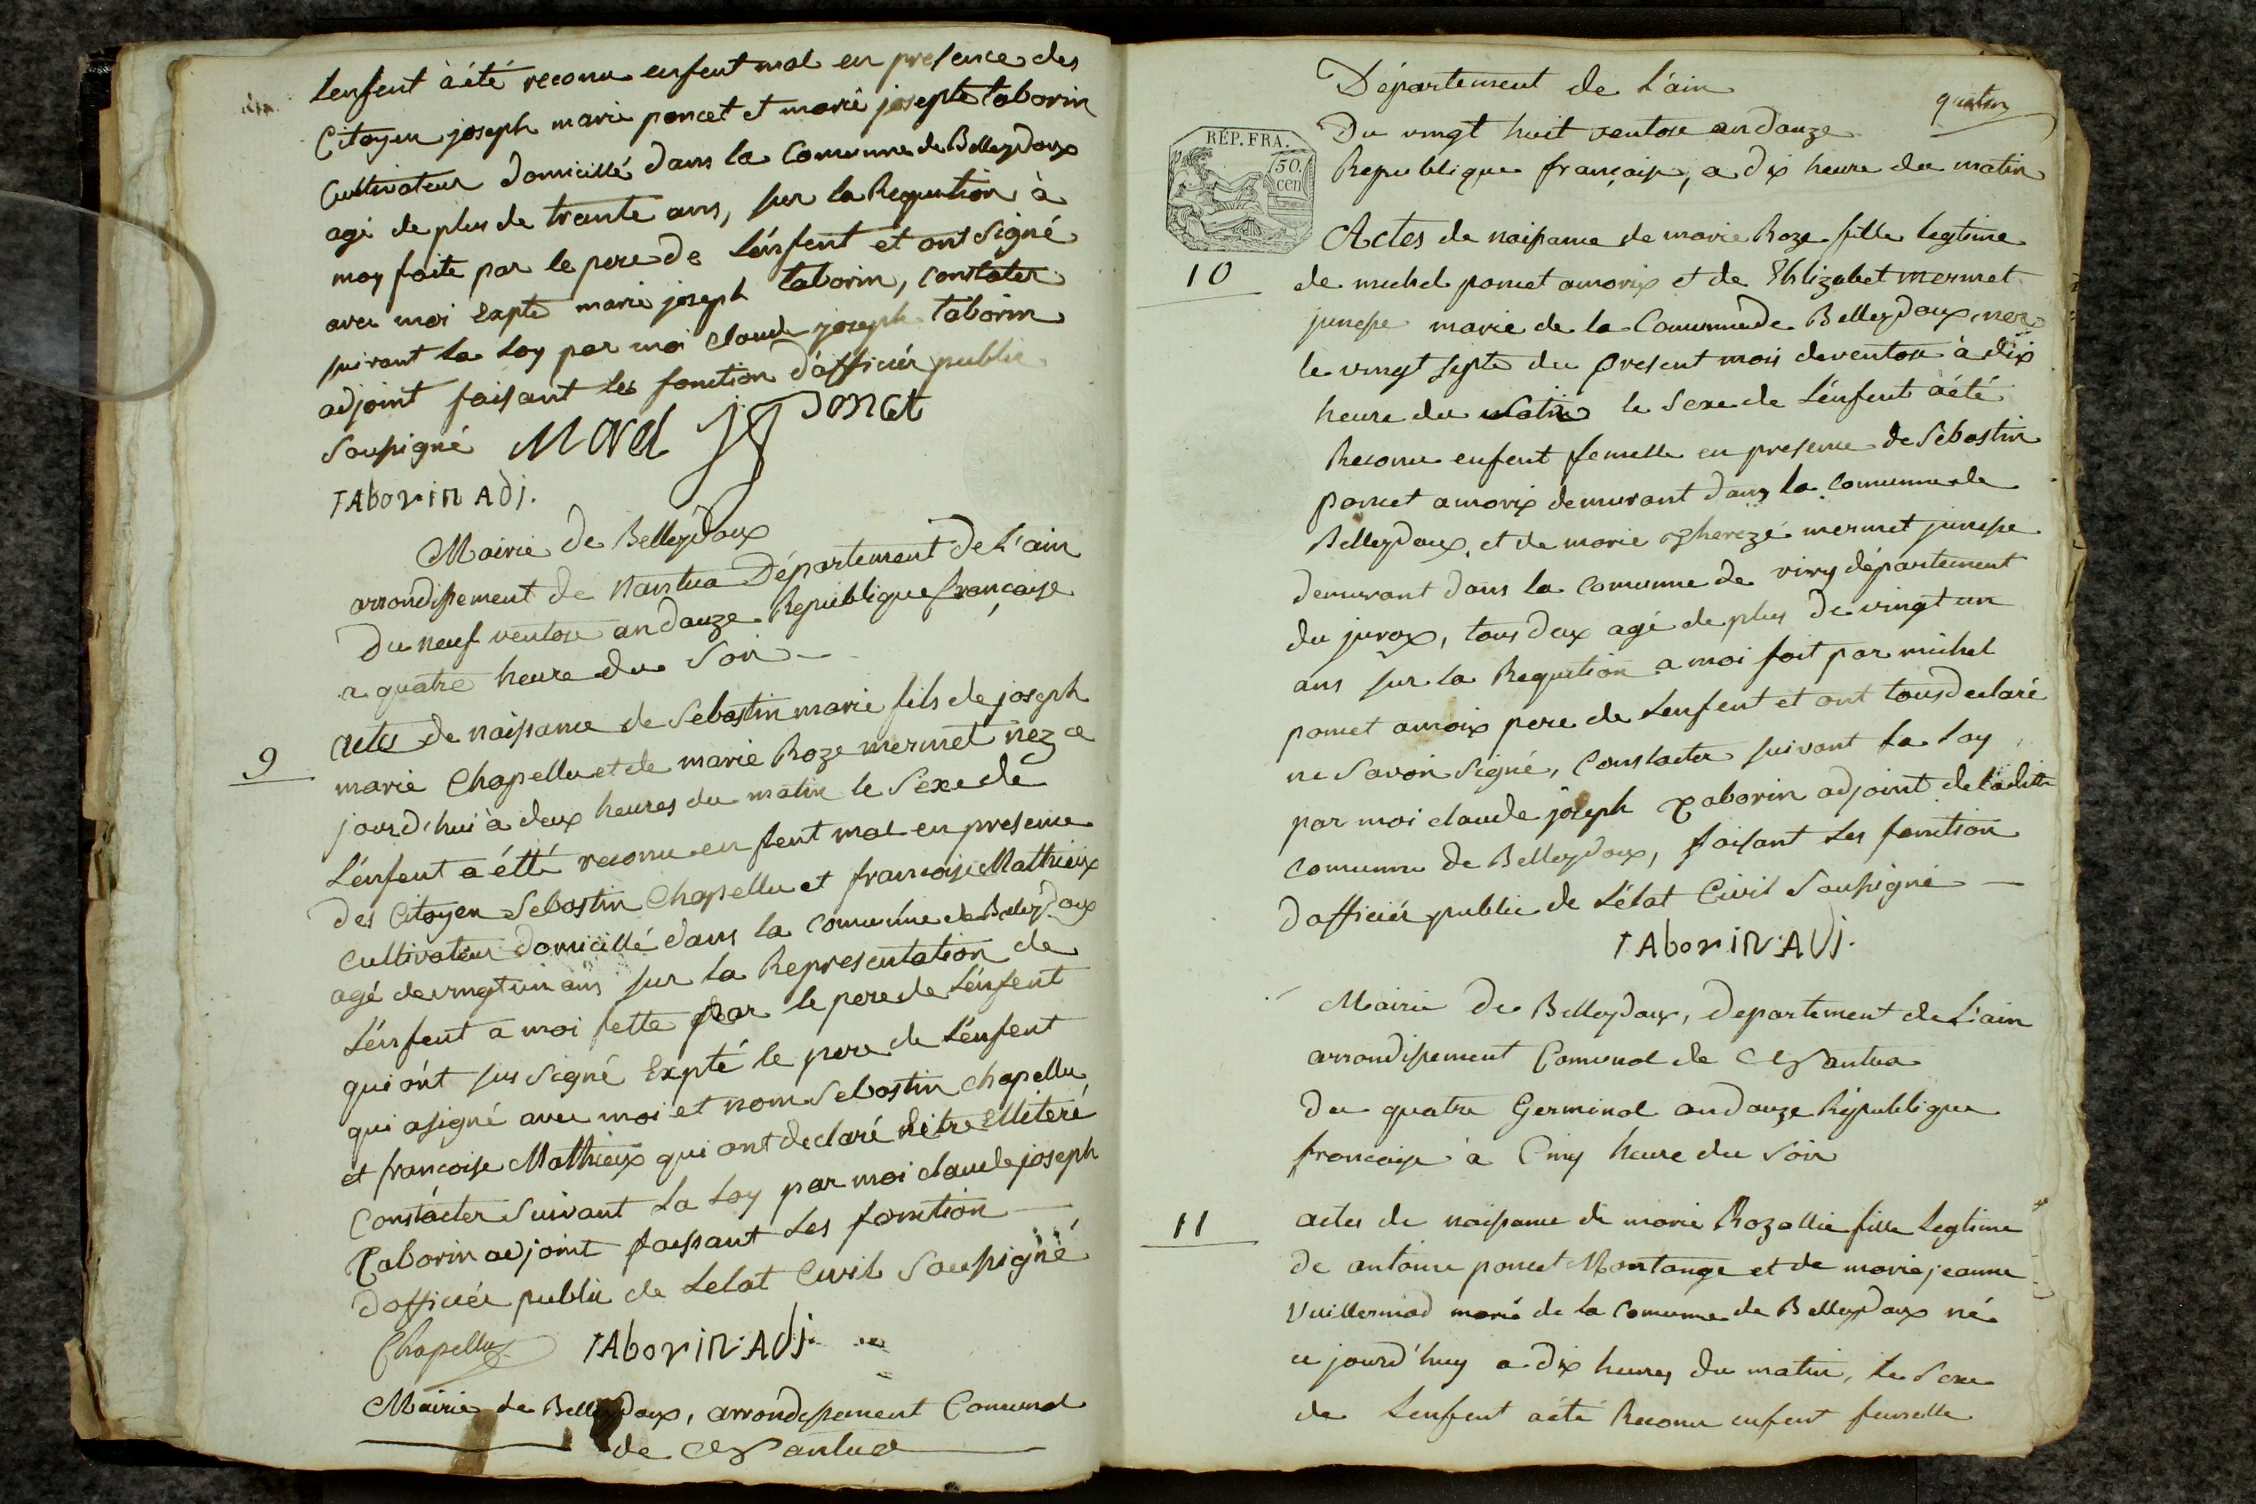 Lenfent àété reconu enfent mal en presence des
Citoyen joseph marie poncet et marie josepte taborin
Cultivateur domicillé dans la Comunne de Belleydoux
agé de plus de trante ans, sur la Requition à
moy faite par le pere de Lénfent et ont signé
avec moi Expté marie joseph taborin, constater
suivant la Loy par moi claude joseph taborin
adjoint faisant les fonction d'afficiér public
Soussigné Morel jj Ponct
TAborin Adj.
Mairie de Belleydoux
arrondissement de Nantua Département de L'ain
Du neuf ventose an douze Republique française
a quatre heure du Soir
9
actes de naissance de Sebastin marie fils de joseph
marie Chapellu et de marie Roze mermet néz ce
jourd'hui à deux heures du matin le Sexe de
Lénfent a étté reconu enfent mal en presence
des Citoyen Sebastin Chapellu et françoise Mathieux
Cultivateur domicillé dans la comunne de Belleydoux
agé de vingt un ans sur la Representation de
Lénfent a moi fette par le pere de Lénfent
qui ont sus signé Expté le pere de Lénfent
qui asigné avec moi et nom Sebastin chapellu
et françoise Mathieux qui ont declaré nètre Elliteré
Constácter Suivant La Loy par moi claude joseph
Taborin adjoint faissant Les fonction
Dafficiér public de Letat Civil Soussigné
Chapellu TAborin Adj.
Mairie de Belleydoux, arrondissement Comunal
de Nantua
Département de L'ain
Du vingt huit ventose an douze
Republique française, a dix heure du matin
RÉP. FRA.
50.
cen
10
Actes de naissance de marie Roze fille legtime
de michel poncet amorix et de Ehlizabet mermet
junesse marie de la Comunne de Belleydoux, nez
le vingt septe du present mois de ventose à dix
heure du Matin le Sexe de Lénfent àété
Reconu enfent femelle en presence de Sébastin
poncet amorix demurant dans la comunne de
Belleydoux, et de marie therezé mermet junesse
demurant dans la comunne de viry département
du jurax, tous deux agé de plus de vingt un
ans sur la Requition a moi fait par michel
poncet amoix pere de Lenfent et ont tous declaré
ne savoir signé, Constacter suivant la Loy
par moi claude joseph Taborin adjoint de Ladite
comunne de Belleydoux, faisant Les fonction
Dafficiér public de L'état Civil Soussigné
TAborin Adj.
Mairie de Belleydoux, departement de L'ain
arrondissement Comunal de Nantua
du quatre Germinal an douze Republique
francaise à Cinq heure du Soir
11
actes de naissance de marie Rozallie fille Legtime
de antoine poncet Montange et de marie jeanne
Vuillermod marié de la Comunne de Belleydoux né
ce jourd'huy a dix heures du matin, le Sexe
de Lenfent àété Reconu enfent femelle